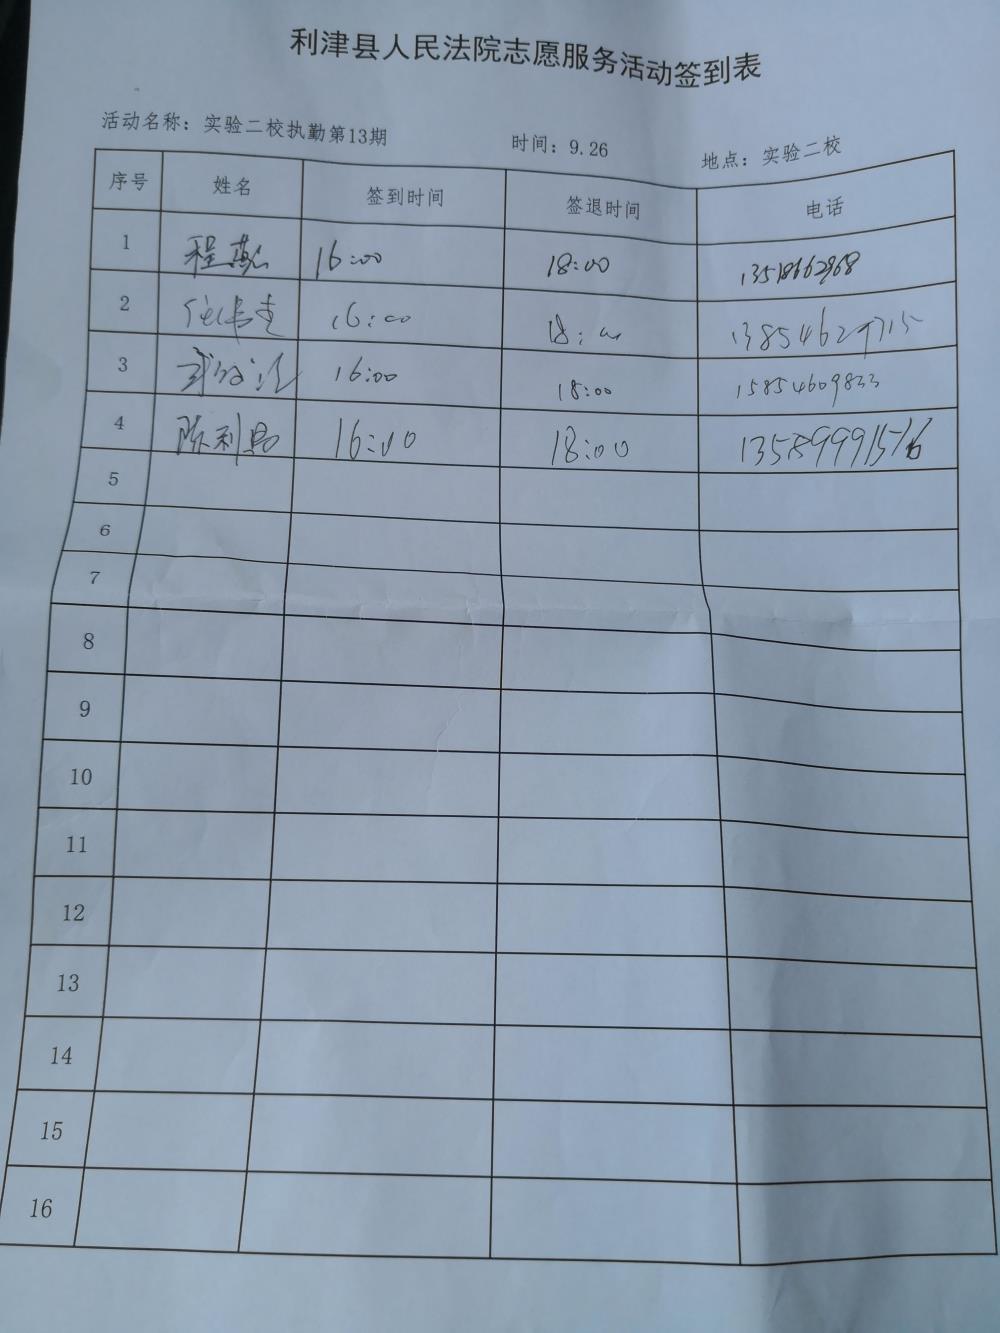 利津县人民法院志愿服务活动签到表
活动名称：实验二校执勤第13期 时间：9.26 地点：实验二校
序号 姓名 签到时间 签退时间 电话
1 程燕 16:00 18:00
2 16:00 18:00 13854629715
3 16:00 18:00 15854609833
4 陈利 16:00 18:00
5
6
7
8
9
10
11
12
13
14
15
16